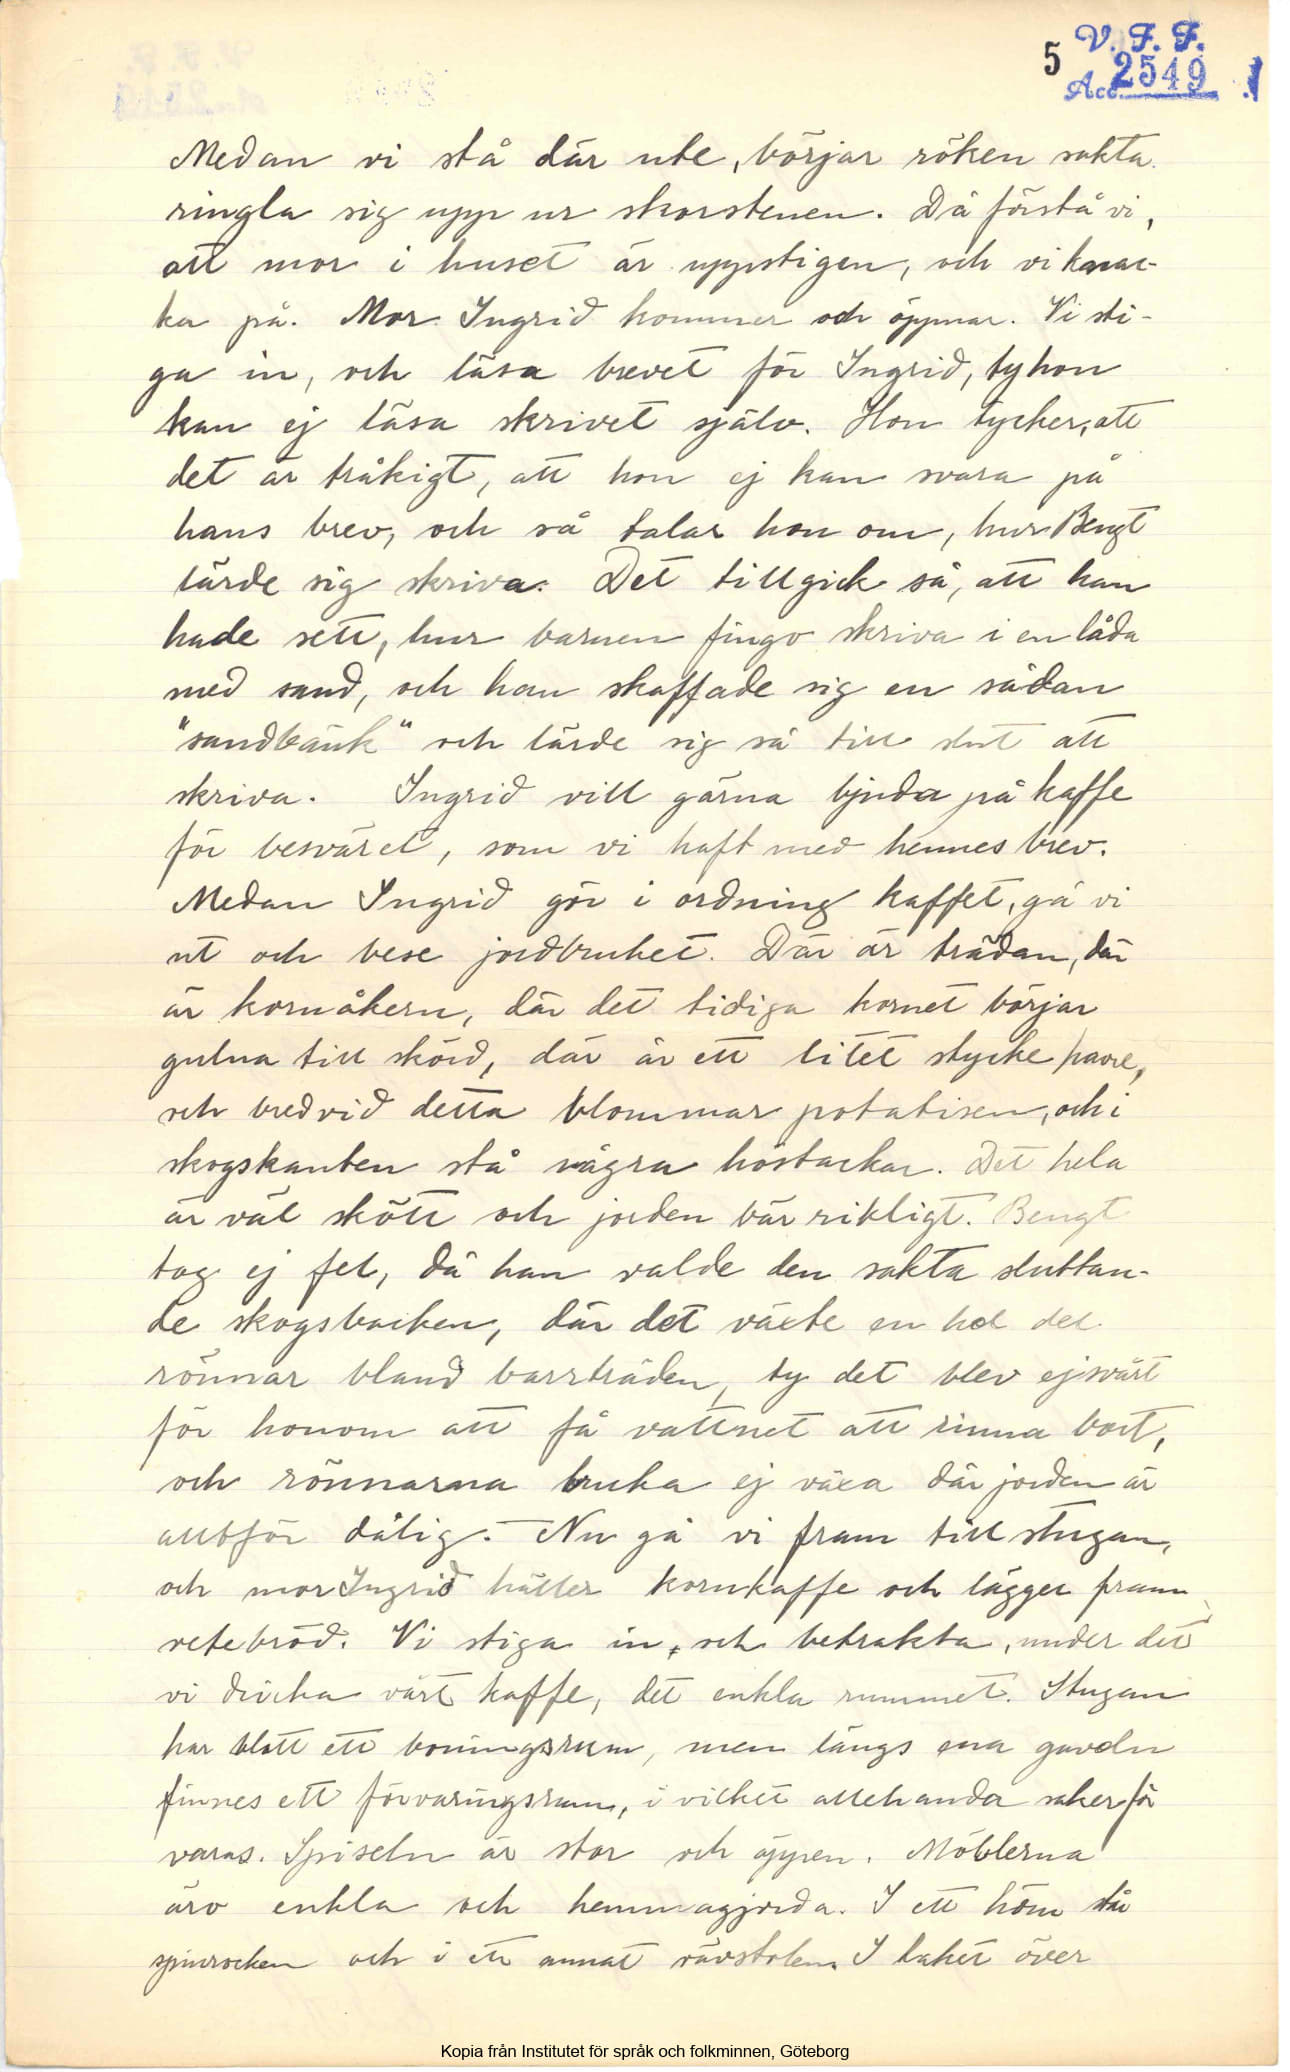 5 V. F. F.
Acc. 2549 .1
Medan vi stå där ute, börjar röken sakta
ringla sig upp ur skorstenen. Då förstå vi,
att mor i huset är uppstigen, och vi knac-
ka på. Mor Ingrid kommer och öppnar. Vi sti-
ga in, och läsa brevet för Ingrid, ty hon
kan ej läsa skrivet själv. Hon tycker, att
det är tråkigt, att hon ej kan svara på
hans brev, och så talar hon om, hur Bengt
lärde sig skriva. Det tillgick så, att han
hade sett, hur barnen fingo skriva i en låda
med sand, och han skaffade sig en sådan
"sandbänk" och lärde sig så till slut att
skriva. Ingrid vill gärna bjuda på kaffe
för besväret, som vi haft med hennes brev.
Medan Ingrid gör i ordning kaffet, gå vi
ut och bese jordbruket. Där är trädan, där
är kornåkern, där det tidiga kornet börjar
gulna till skörd, där är ett litet stycke havre,
och bredvid detta blommar potatisen, och i
skogskanten stå några höstackar. Det hela
är väl skött och jorden bär rikligt. Bengt
tog ej fel, då han valde den sakta sluttan-
de skogsbacken, där det växte en hel del
rönnar bland barrträden, ty det blev ej svårt
för honom att få vattnet att rinna bort,
och rönnarna bruka ej växa där jorden är
alltför dålig. Nu gå vi fram till stugan,
och mor Ingrid häller kornkaffe och lägger fram
vetebröd. Vi stiga in, och betrakta, under det
vi dricka vårt kaffe, det enkla rummet. Stugan
har blott ett boningsrum, men längs ena gaveln
finnes ett förvaringsrum, i vilket allehanda saker för
varas. Spiseln är stor och öppen. Möblerna
äro enkla och hemmagjorda. I ett hörn står
spinrocken och i ett annat vävstolen. I taket över
Kopia från Institutet för språk och folkminnen, Göteborg